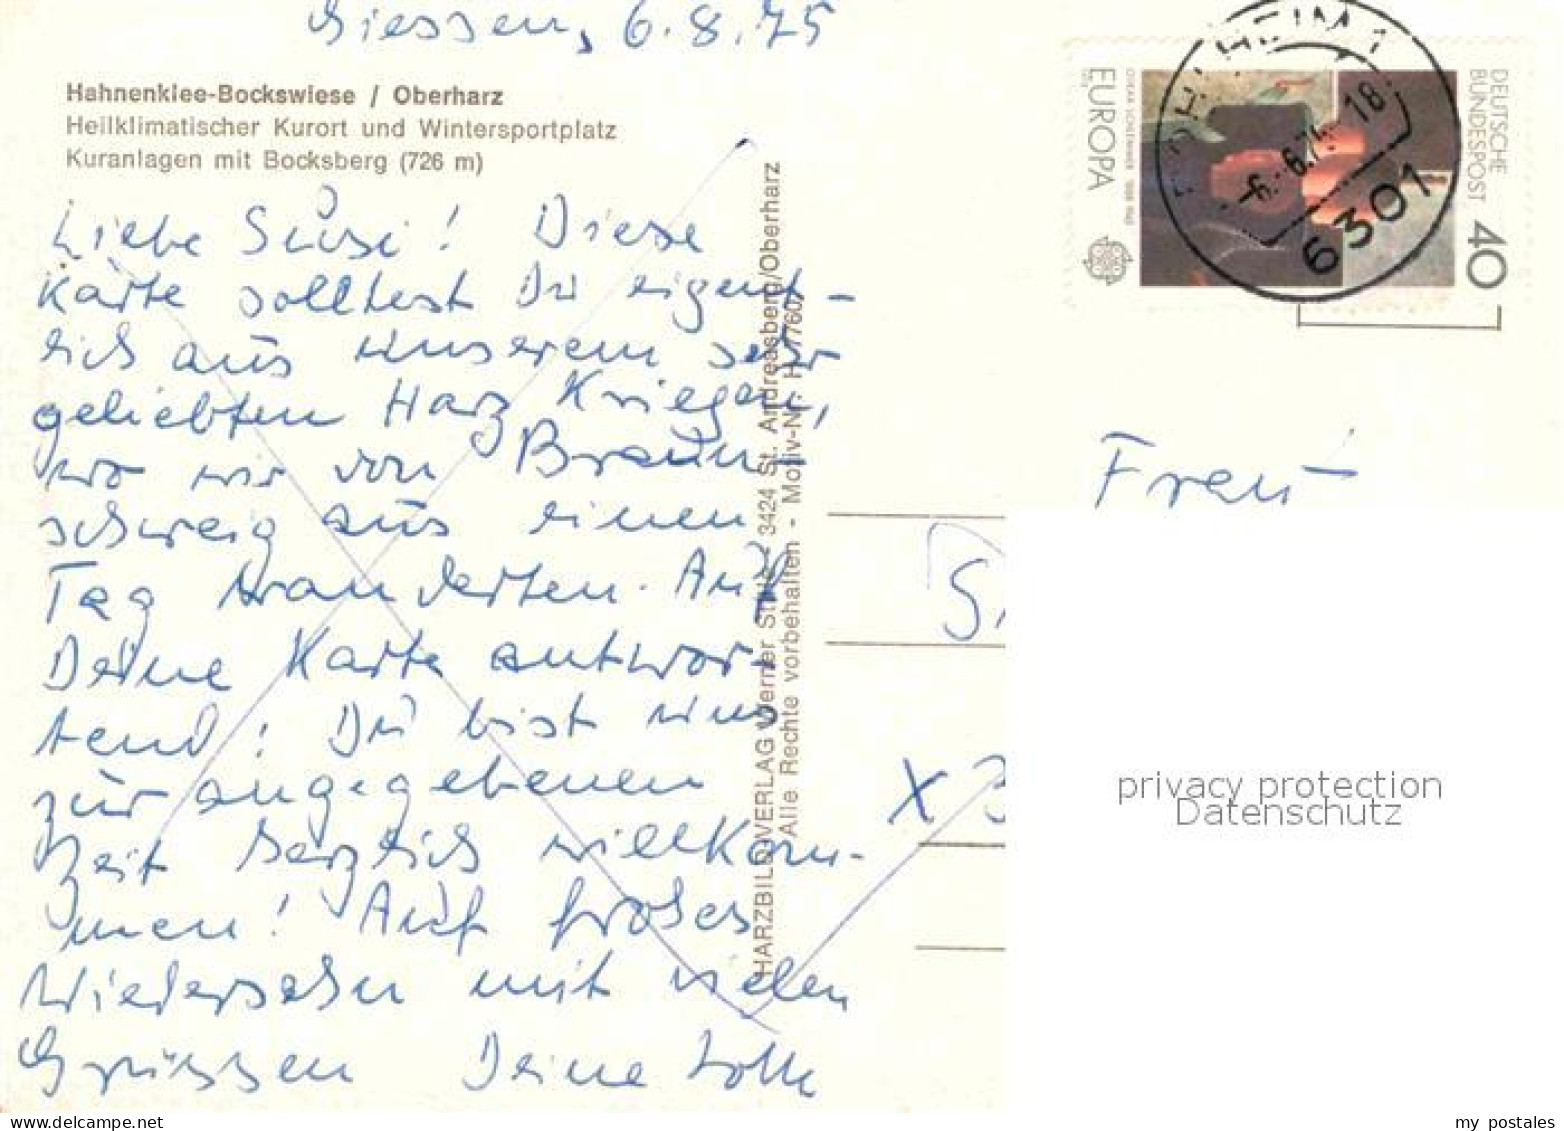 Giessen, 6.8.75
Hahnenklee-Bockswiese / Oberharz
Heilklimatischer Kurort und Wintersportplatz
Kuranlagen mit Bocksberg (726 m)
Liebe Süsi! Diese
Karte solltest Du eigent-
lich aus unserem sehr
geliebten Harz kriegen,
wo wir von Braun-
schweig aus einen
Tag wanderten. Auf
Deine Karte antwor-
tend: Du bist uns
zur angegebenen
Zeit herzlich willkom-
men! Auf frohes
Wiedersehn mit vielen
Grüssen Deine Lotte
HARZBILD-VERLAG Werner 3424 St. Andreasberg/Oberharz
Alle Rechte vorbehalten - Motiv-Nr. H
DEUTSCHE
BUNDESPOST
40
OSKAR SCHLEMMER 1888-1943
EUROPA
HEIM 1
18
6301
Frau
X 3
privacy protection
Datenschutz
my postales